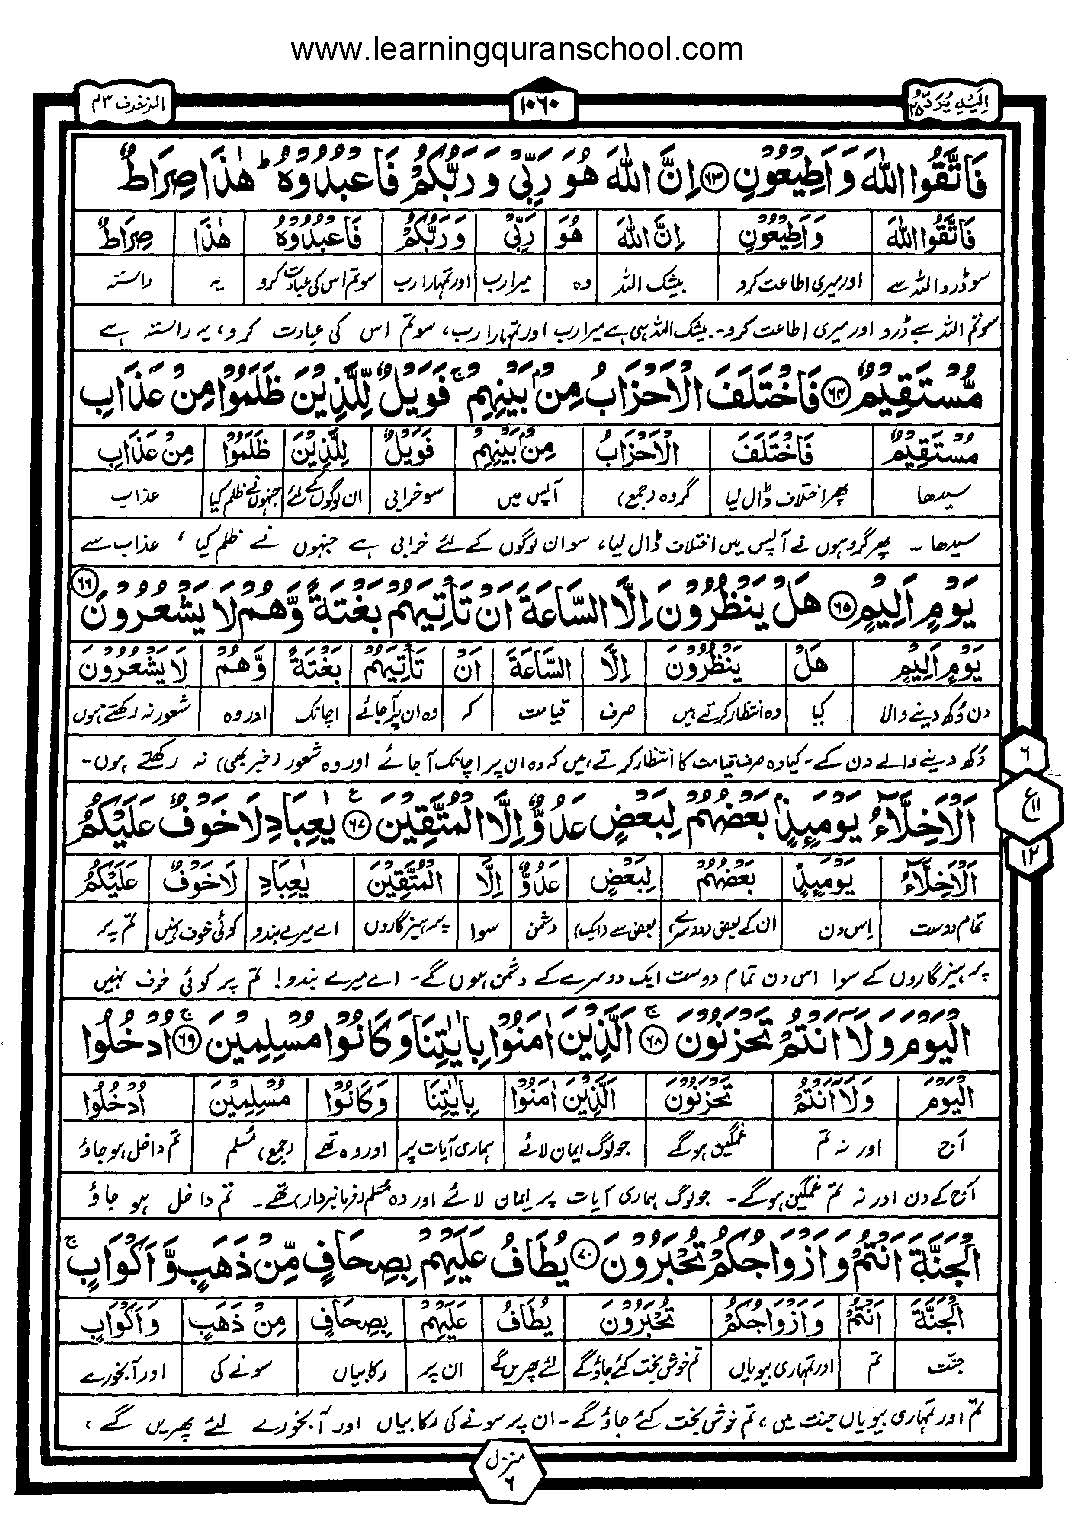 www.learningquranschool.com
اِلَیْهِ یُرَدُّ ۲۵
۱۰۶۰
الزخرف ۴۳
فَاتَّقُوا اللّٰهَ وَاَطِیْعُوْنِ ۶۳ اِنَّ اللّٰهَ هُوَ رَبِّیْ وَرَبُّكُمْ فَاعْبُدُوْهُ ؕ هٰذَا صِرَاطٌ
فَاتَّقُوا اللّٰهَ وَاَطِیْعُوْنِ اِنَّ اللّٰهَ هُوَ رَبِّیْ وَرَبُّكُمْ فَاعْبُدُوْهُ هٰذَا صِرَاطٌ
سو ڈرو اللہ سے اور میری اطاعت کرو بیشک اللہ وہ میرا رب اور تمہارا رب سو تم اس کی عبادت کرو یہ راستہ
سو تم اللہ سے ڈرو اور میری اطاعت کرو۔ بیشک اللہ ہی ہے میرا رب اور تمہارا رب، سو تم اس کی عبادت کرو، یہ راستہ ہے
مُّسْتَقِیْمٌ ۶۴ فَاخْتَلَفَ الْاَحْزَابُ مِنْۢ بَیْنِهِمْ ۚ فَوَیْلٌ لِّلَّذِیْنَ ظَلَمُوْا مِنْ عَذَابِ
مُسْتَقِیْمٌ فَاخْتَلَفَ الْاَحْزَابُ مِنْۢ بَیْنِهِمْ فَوَیْلٌ لِلَّذِیْنَ ظَلَمُوْا مِنْ عَذَابِ
سیدھا پھر اختلاف ڈال لیا گروہ (جمع) آپس میں سو خرابی ان لوگوں کے لئے جنہوں نے ظلم کیا عذاب
سیدھا۔ پھر گروہوں نے آپس میں اختلاف ڈال لیا، سو ان لوگوں کے لئے خرابی ہے جنہوں نے ظلم کیا، عذاب سے
یَوْمٍ اَلِیْمٍ ۶۵ هَلْ یَنْظُرُوْنَ اِلَّا السَّاعَةَ اَنْ تَاْتِیَهُمْ بَغْتَةً وَّهُمْ لَا یَشْعُرُوْنَ ۶۶
یَوْمٍ اَلِیْمٍ هَلْ یَنْظُرُوْنَ اِلَّا السَّاعَةَ اَنْ تَاْتِیَهُمْ بَغْتَةً وَّهُمْ لَا یَشْعُرُوْنَ
دن دکھ دینے والی کیا وہ انتظار کرتے ہیں صرف قیامت کہ وہ ان پر آ جائے اچانک اور وہ شعور نہ رکھتے ہوں
دکھ دینے والے دن کے۔ کیا وہ صرف قیامت کا انتظار کرتے ہیں کہ وہ ان پر اچانک آ جائے اور وہ شعور (خبر بھی) نہ رکھتے ہوں۔
۶
ع ۱۱
۱۲
اَلْاَخِلَّآءُ یَوْمَئِذٍۭ بَعْضُهُمْ لِبَعْضٍ عَدُوٌّ اِلَّا الْمُتَّقِیْنَ ۶۷ یٰعِبَادِ لَا خَوْفٌ عَلَیْكُمُ
اَلْاَخِلَّآءُ یَوْمَئِذٍ بَعْضُهُمْ لِبَعْضٍ عَدُوٌّ اِلَّا الْمُتَّقِیْنَ یٰعِبَادِ لَا خَوْفٌ عَلَیْكُمُ
تمام دوست اس دن ان کے بعض (دوسرے) بعض سے (ایک) دشمن سوا پرہیزگاروں اے میرے بندو کوئی خوف نہیں تم پر
پرہیزگاروں کے سوا اس دن تمام دوست ایک دوسرے کے دشمن ہوں گے۔ اے میرے بندو! تم پر کوئی خوف نہیں
الْیَوْمَ وَلَاۤ اَنْتُمْ تَحْزَنُوْنَ ۶۸ اَلَّذِیْنَ اٰمَنُوْا بِاٰیٰتِنَا وَكَانُوْا مُسْلِمِیْنَ ۶۹ اُدْخُلُوا
الْیَوْمَ وَلَاۤ اَنْتُمْ تَحْزَنُوْنَ اَلَّذِیْنَ اٰمَنُوْا بِاٰیٰتِنَا وَكَانُوْا مُسْلِمِیْنَ اُدْخُلُوا
آج اور نہ تم غمگین ہو گے جو لوگ ایمان لائے ہماری آیات پر اور وہ تھے (جمع) مسلم تم داخل ہو جاؤ
آج کے دن اور نہ تم غمگین ہو گے۔ جو لوگ ہماری آیات پر ایمان لائے اور وہ مسلم (فرمانبردار) تھے۔ تم داخل ہو جاؤ
الْجَنَّةَ اَنْتُمْ وَاَزْوَاجُكُمْ تُحْبَرُوْنَ ۷۰ یُطَافُ عَلَیْهِمْ بِصِحَافٍ مِّنْ ذَهَبٍ وَّاَكْوَابٍ ۚ
الْجَنَّةَ اَنْتُمْ وَاَزْوَاجُكُمْ تُحْبَرُوْنَ یُطَافُ عَلَیْهِمْ بِصِحَافٍ مِنْ ذَهَبٍ وَاَكْوَابٍ
جنت تم اور تمہاری بیویاں تم خوش بخت کئے جاؤ گے لئے پھریں گے ان پر رکابیاں سونے کی اور آبخورے
تم اور تمہاری بیویاں جنت میں، تم خوش بخت کئے جاؤ گے۔ ان پر سونے کی رکابیاں اور آبخورے لئے پھریں گے،
منزل
۶